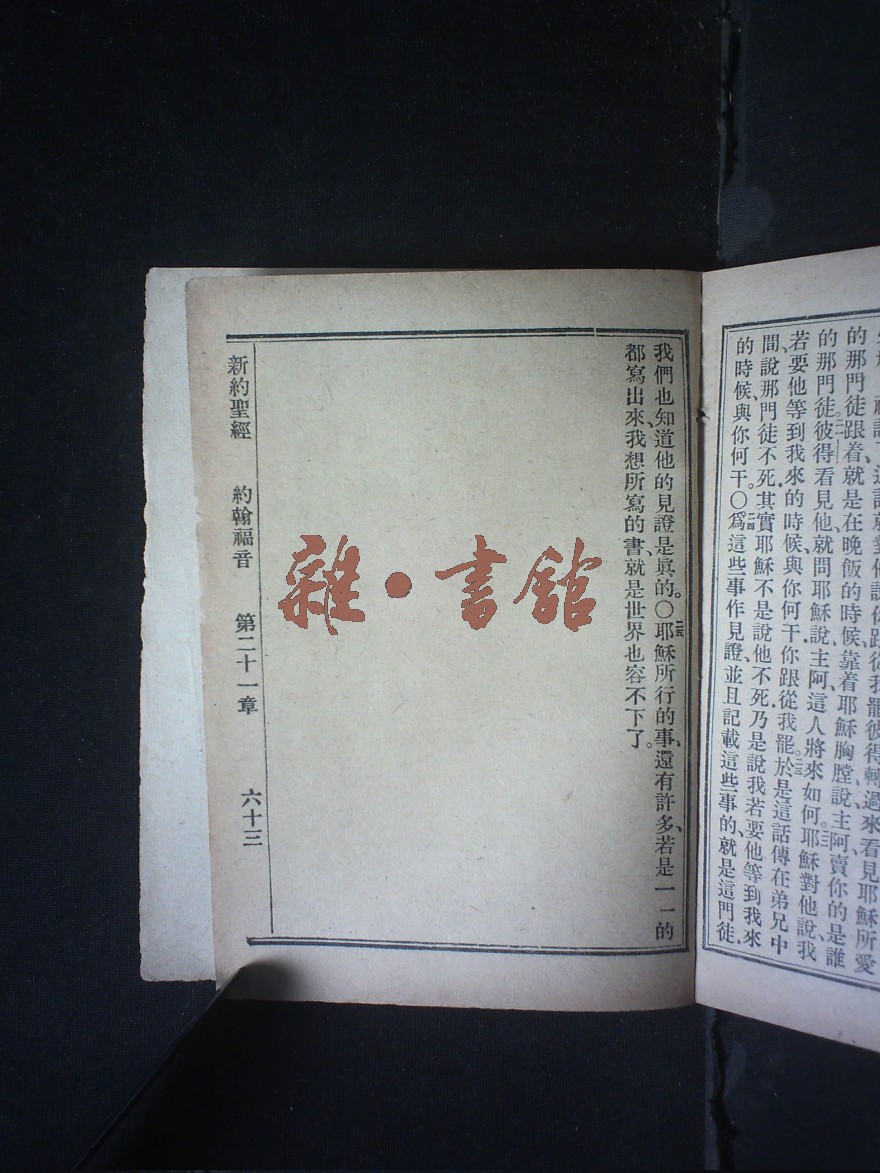 的那門徒跟着就是在晚飯的時候、靠着耶穌胸膛說、主阿、賣你的是誰
的那門徒。二一彼得看見他、就問耶穌說、主阿、這人將來如何。二二耶穌對他說、我
若要他等到我來的時候、與你何干、你跟從我罷。二三於是這話傳在弟兄中
間、說那門徒不死、其實耶穌不是說他不死、乃是說我若要他等到我來
的時候、與你何干。〇二四爲這些事作見證、並且記載這些事的、就是這門徒、
我們也知道他的見證是眞的。〇二五耶穌所行的事、還有許多、若是一一的
都寫出來、我想所寫的書、就是世界也容不下了。
新約聖經 約翰福音 第二十一章 六十三
雜·書館